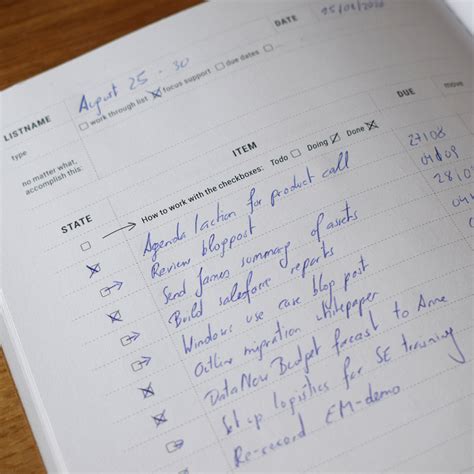 DATE 25/08/2020
LISTNAME August 25 - 30
type □ work through list ☒ focus support □ due dates □ ...
no matter what,
accomplish this:
ITEM DUE move
STATE How to work with the checkboxes: Todo □ Doing ☑ Done ☒
Agenda / action for product call 27/08
Review blogpost
Send James summary of assets
Build salesforce reports
Windows use case blog post
Outline migration whitepaper
Data New Budget forecast to Anne
Set up logistics for SE training
Re-record EM-demo